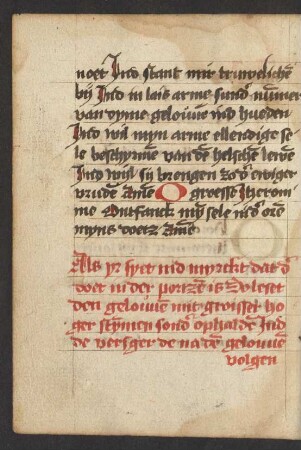 noet Ind stant mir truwelichē
bÿ Ind in lais arme sund nūmer
van dyme gelouuē nid hueden
Ind wil myn arme ellendige se
le beschyrmē van dē helschē lewe
Ind wÿl sÿ brengen zo d ewiger
vruden Amē O groesse Iheroni
me Ontfanck mÿ sele in d ore
myns doetz Amē
Als yr syet vnd myrckt dat d
doet in der portzē is So leset
den gelouuē mit groisser ho
ger stÿmen sond ophaldē Ind
de verssger de na dē gelouuē
volgen